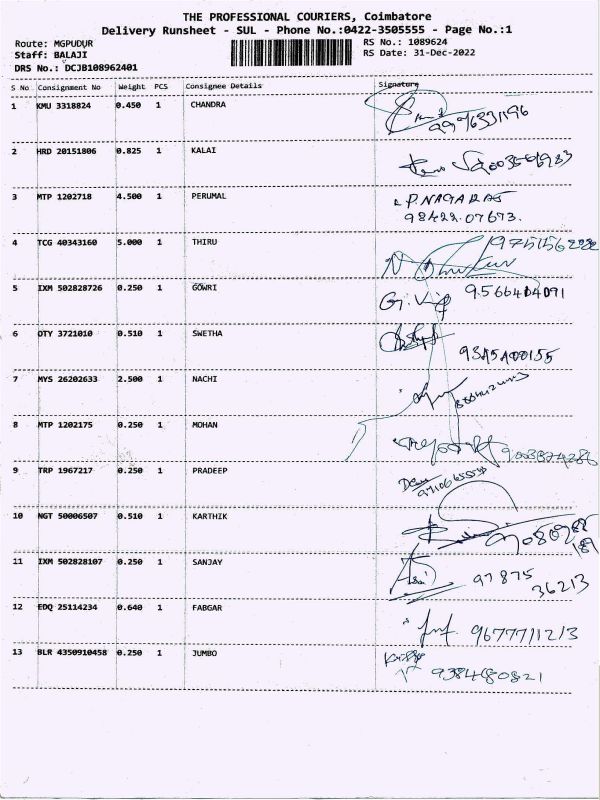 THE PROFESSIONAL COURIERS, Coimbatore
Delivery Runsheet - SUL - Phone No.:0422-3505555 - Page No.:1
Route: MGPUDUR
RS No.: 1089624
Staff: BALAJI
RS Date: 31-Dec-2022
DRS No.: DCJB108962401
S No Consignment No Weight PCS Consignee Details Signature
1 KMU 3318824 0.450 1 CHANDRA
9996331196
2 HRD 20151806 0.825 1 KALAI
3 MTP 1202718 4.500 1 PERUMAL P.NAGARAJ
98422.07673.
4 TCG 40343160 5.000 1 THIRU
5 IXM 502828726 0.250 1 GOWRI 9566404091
6 OTY 3721010 0.510 1 SWETHA
9345400155
7 MYS 26202633 2.500 1 NACHI
8 MTP 1202175 0.250 1 MOHAN
9003874286
9 TRP 1967217 0.250 1 PRADEEP
10 NGT 50006507 0.510 1 KARTHIK
11 IXM 502828107 0.250 1 SANJAY
97875
36213
12 EDQ 25114234 0.640 1 FABGAR
9677711213
13 BLR 4350910458 0.250 1 JUMBO
9384480821